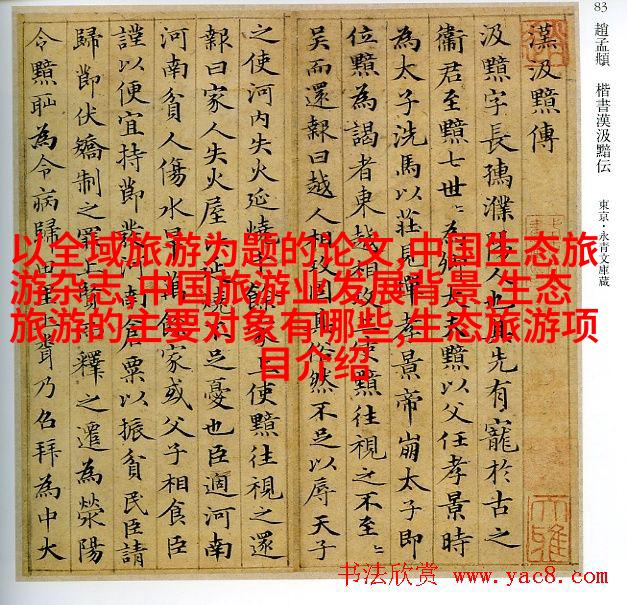 83 趙孟頫 楷書漢汲黯伝 東京・永青文庫蔵
漢汲黯傳
汲黯字長孺濮陽人也其先有寵於古之
衞君至黯七世〻為卿大夫黯以父任孝景時
為太子洗馬以莊見憚孝景帝崩太子即
位黯為謁者東越相攻上使黯往視之不至〻
吳而還報曰越人相攻固其俗然不足以辱天子
之使河內失火延燒千餘家上使黯往視之還
報曰家人失火屋比延燒不足憂也臣過河南
河南貧人傷水旱萬餘家或父子相食臣
謹以便宜持節發河南倉粟以振貧民臣請
歸節伏矯制之罪上賢而釋之遷為滎陽
令黯恥為令病歸田里上乃召拜為中大
以全域旅游为题的论文,中国生态旅
游杂志,中国旅游业发展背景,生态
旅游的主要对象有哪些,生态旅游项
目介绍
书法欣赏 www.yac8.com